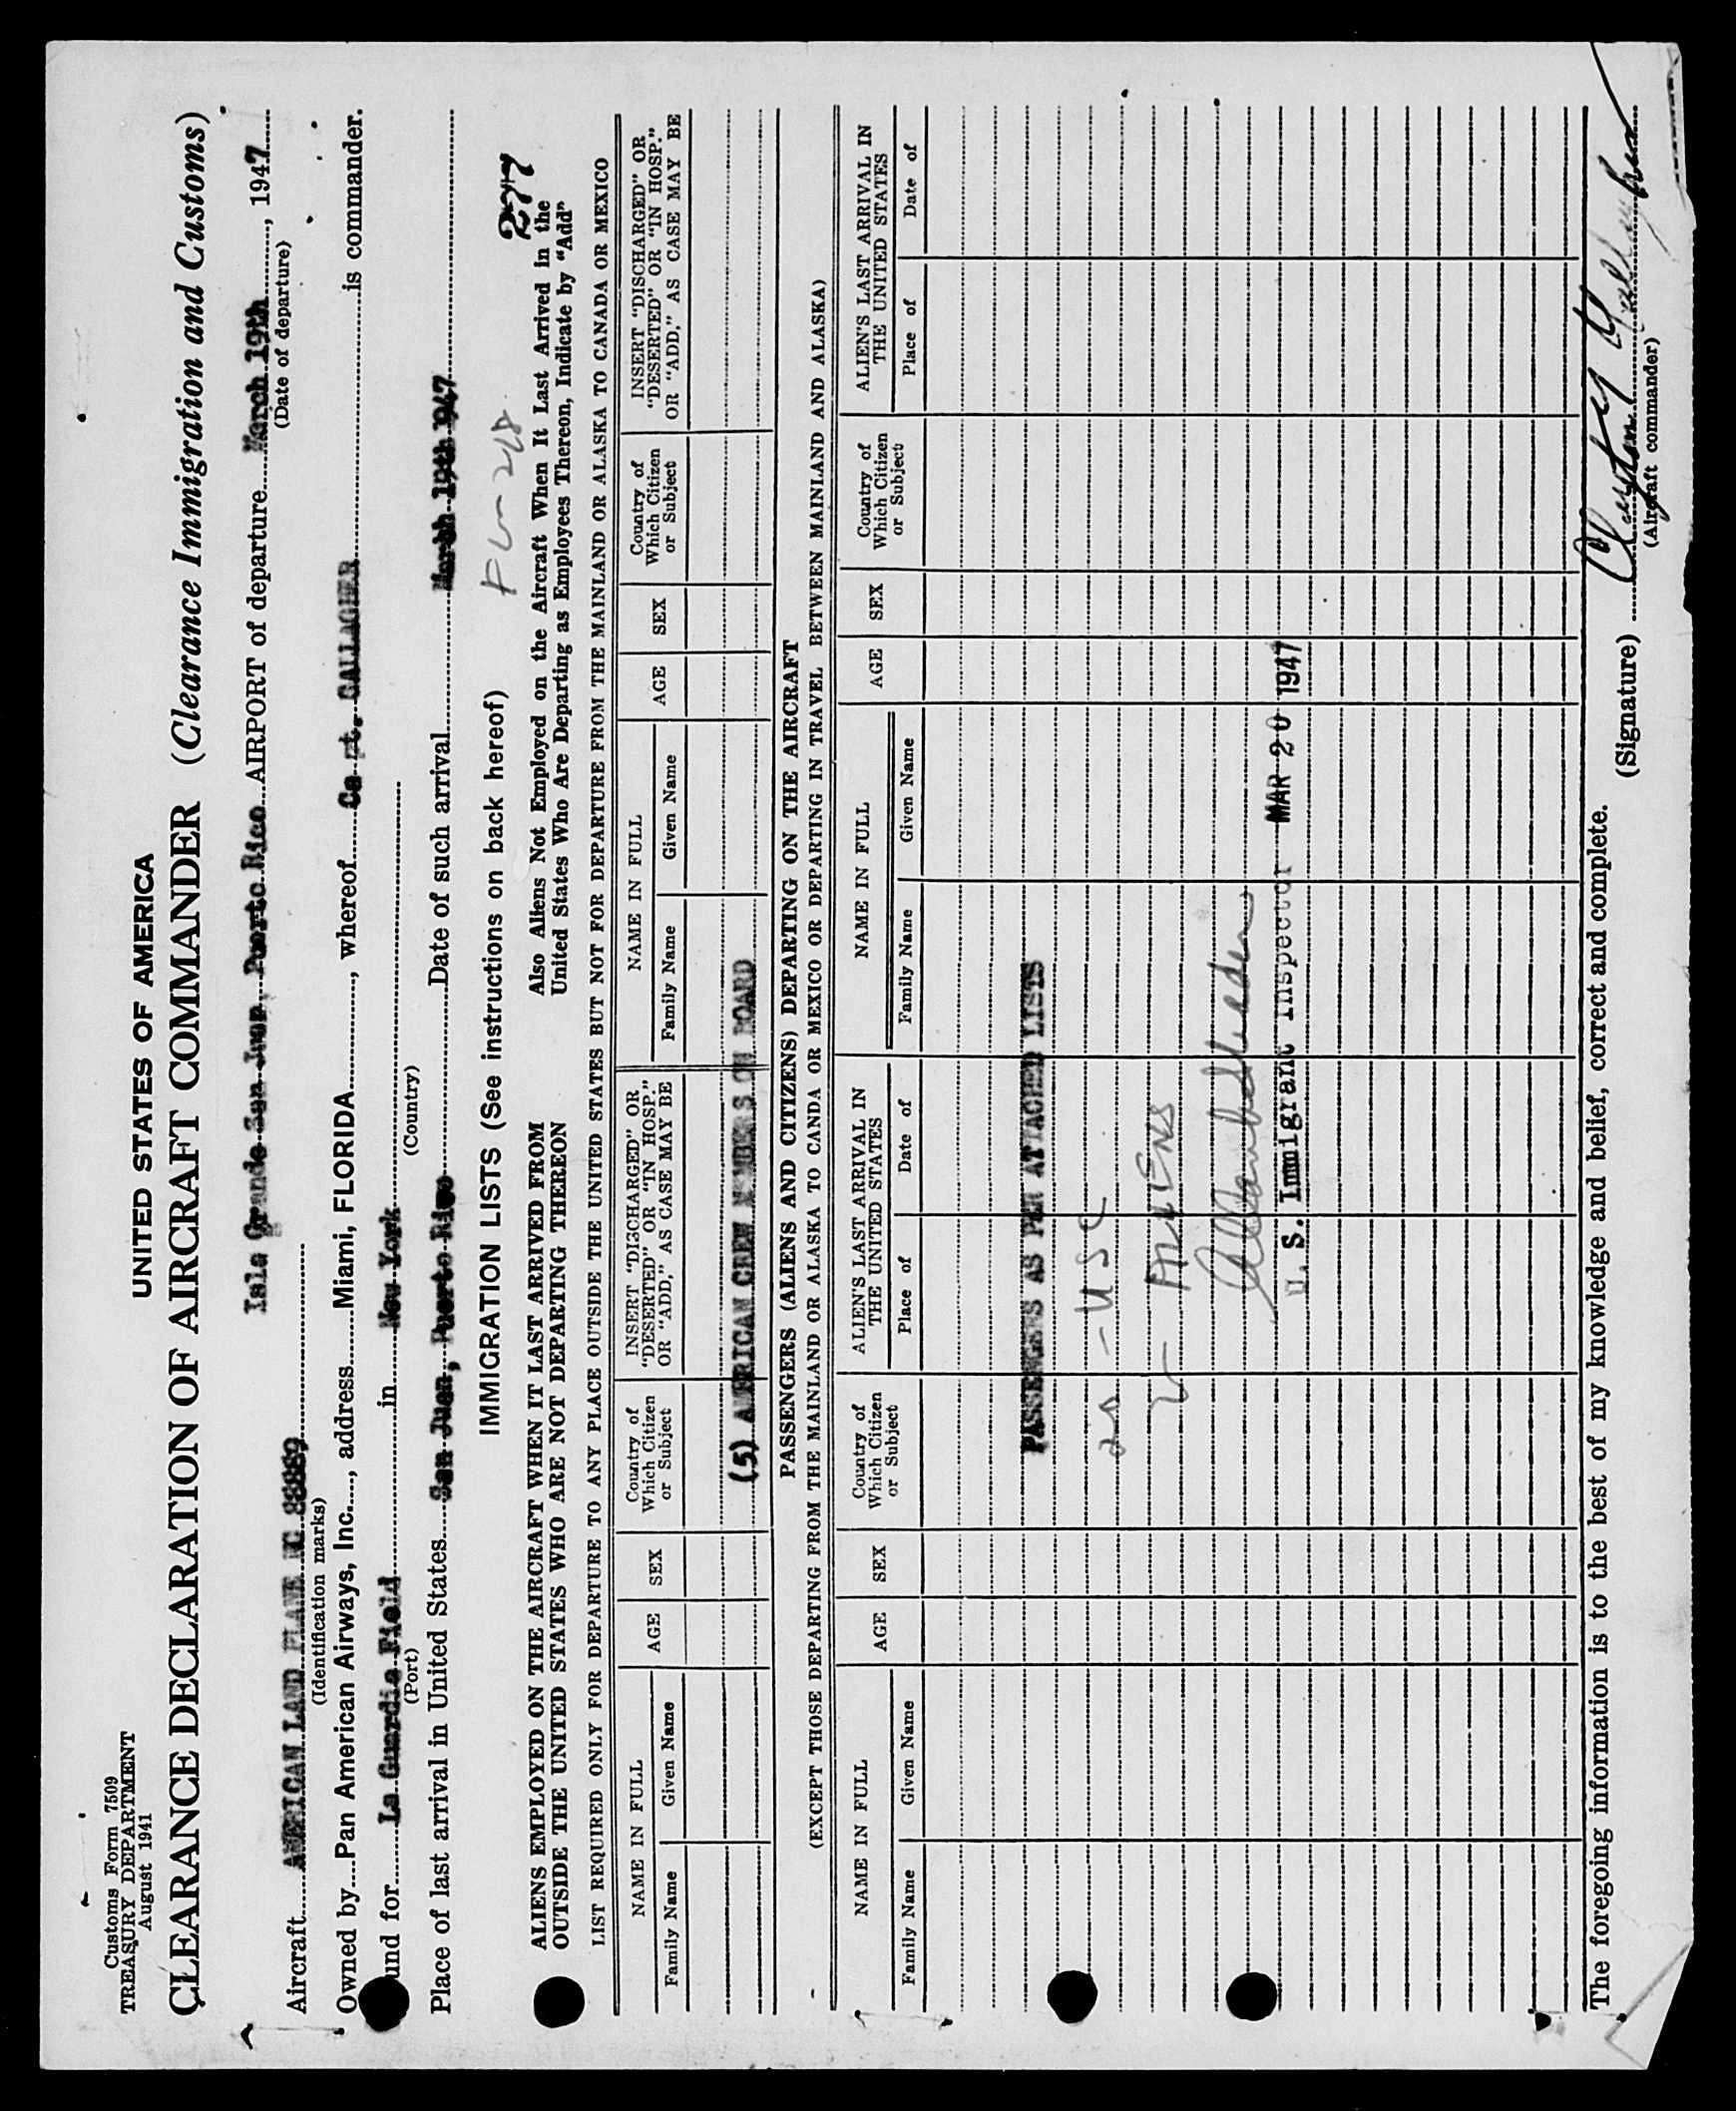 Customs Form 7509
TREASURY DEPARTMENT
August 1941
UNITED STATES OF AMERICA
CLEARANCE DECLARATION OF AIRCRAFT COMMANDER (Clearance Immigration and Customs)
Isla Grande San Juan, Puerto Rico AIRPORT of departure March 19th, 1947
(Date of departure)
Aircraft AMERICAN LAND PLANE NC 88889
(Identification marks)
Owned by Pan American Airways, Inc., address Miami, FLORIDA, whereof Capt. GALLAGHER is commander.
und for La Guardia Field in New York
(Port) (Country)
Place of last arrival in United States San Juan, Puerto Rico Date of such arrival March 19th 1947
IMMIGRATION LISTS (See instructions on back hereof) FL-268 277
ALIENS EMPLOYED ON THE AIRCRAFT WHEN IT LAST ARRIVED FROM
OUTSIDE THE UNITED STATES WHO ARE NOT DEPARTING THEREON
Also Aliens Not Employed on the Aircraft When It Last Arrived in the
United States Who Are Departing as Employees Thereon, Indicate by "Add"
LIST REQUIRED ONLY FOR DEPARTURE TO ANY PLACE OUTSIDE THE UNITED STATES BUT NOT FOR DEPARTURE FROM THE MAINLAND OR ALASKA TO CANADA OR MEXICO
NAME IN FULL
Family Name
Given Name
AGE
SEX
Country of
Which Citizen
or Subject
INSERT "DISCHARGED" OR
"DESERTED" OR "IN HOSP."
OR "ADD," AS CASE MAY BE
NAME IN FULL
Family Name
Given Name
AGE
SEX
Country of
Which Citizen
or Subject
INSERT "DISCHARGED" OR
"DESERTED" OR "IN HOSP."
OR "ADD," AS CASE MAY BE
(5) AMERICAN CREW MEMBERS ON BOARD
PASSENGERS (ALIENS AND CITIZENS) DEPARTING ON THE AIRCRAFT
(EXCEPT THOSE DEPARTING FROM THE MAINLAND OR ALASKA TO CANDA OR MEXICO OR DEPARTING IN TRAVEL BETWEEN MAINLAND AND ALASKA)
NAME IN FULL
Family Name
Given Name
AGE
SEX
Country of
Which Citizen
or Subject
ALIEN'S LAST ARRIVAL IN
THE UNITED STATES
Place of
Date of
NAME IN FULL
Family Name
Given Name
AGE
SEX
Country of
Which Citizen
or Subject
ALIEN'S LAST ARRIVAL IN
THE UNITED STATES
Place of
Date of
PASSENGERS AS PER ATTACHED LISTS
20 - USC
2 - ALIENS
U. S. Immigrant Inspector MAR 20 1947
The foregoing information is to the best of my knowledge and belief, correct and complete.
(Signature)
(Aircraft commander)